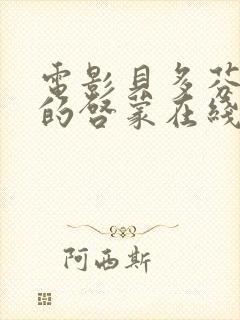 電影貝多芬
的啓蒙在綫
阿西斯